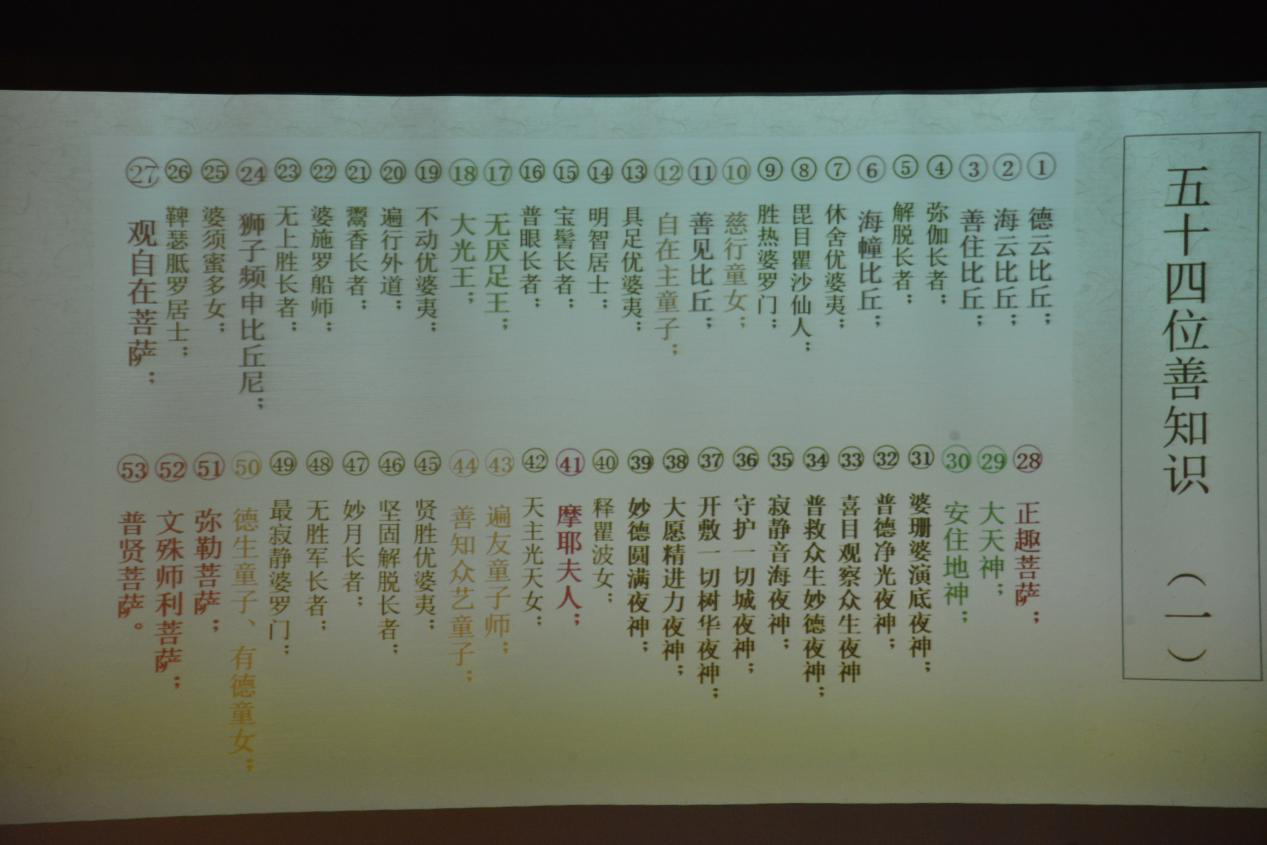 五十四位善知识 （一）
①德云比丘；
②海云比丘；
③善住比丘；
④弥伽长者；
⑤解脱长者；
⑥海幢比丘；
⑦休舍优婆夷；
⑧毘目瞿沙仙人；
⑨胜热婆罗门；
⑩慈行童女；
⑪善见比丘；
⑫自在主童子；
⑬具足优婆夷；
⑭明智居士；
⑮宝髻长者；
⑯普眼长者；
⑰无厌足王；
⑱大光王；
⑲不动优婆夷；
⑳遍行外道；
㉑鬻香长者；
㉒婆施罗船师；
㉓无上胜长者；
㉔狮子频申比丘尼；
㉕婆须蜜多女；
㉖鞞瑟胝罗居士；
㉗观自在菩萨；
㉘正趣菩萨；
㉙大天神；
㉚安住地神；
㉛婆珊婆演底夜神；
㉜普德净光夜神；
㉝喜目观察众生夜神
㉞普救众生妙德夜神；
㉟寂静音海夜神；
㊱守护一切城夜神；
㊲开敷一切树华夜神；
㊳大愿精进力夜神；
㊴妙德圆满夜神；
㊵释瞿波女；
㊶摩耶夫人；
㊷天主光天女；
㊸遍友童子师；
㊹善知众艺童子；
㊺贤胜优婆夷；
㊻坚固解脱长者；
㊼妙月长者；
㊽无胜军长者；
㊾最寂静婆罗门；
㊿德生童子、有德童女；
51弥勒菩萨；
52文殊师利菩萨；
53普贤菩萨。